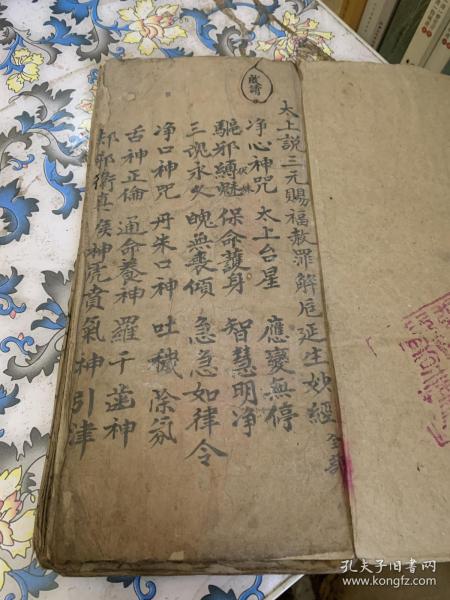 啟請
太上説三元賜福赦罪解厄延生妙經
净心神咒 太上台星 應變無停
驅邪縛魅 保命護身 智慧明净
三魂永久 魄無喪傾 急急如律令
净口神咒 丹朱口神 吐穢除氛
舌神正倫 通命養神 羅千齒神
却邪衛真 喉神虎賁 氣神引津
孔夫子旧书网
www.kongfz.com